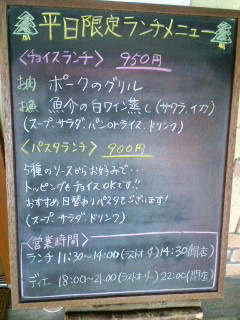 平日限定ランチメニュー
〈チョイスランチ〉 950円
お肉 ポークのグリル
お魚 魚介の白ワイン蒸し(サクラ、イカ)
(スープ、サラダ、パンorライス、ドリンク)
〈パスタランチ〉 900円
5種のソースからお好みで…
トッピングもチョイスOKです!!
おすすめ日替わりパスタもございます!
(スープ、サラダ、ドリンク)
〈営業時間〉
ランチ 11:30~14:00(ラストオーダー) 14:30(閉店)
ディナー 18:00~21:00(ラストオーダー) 22:00(閉店)